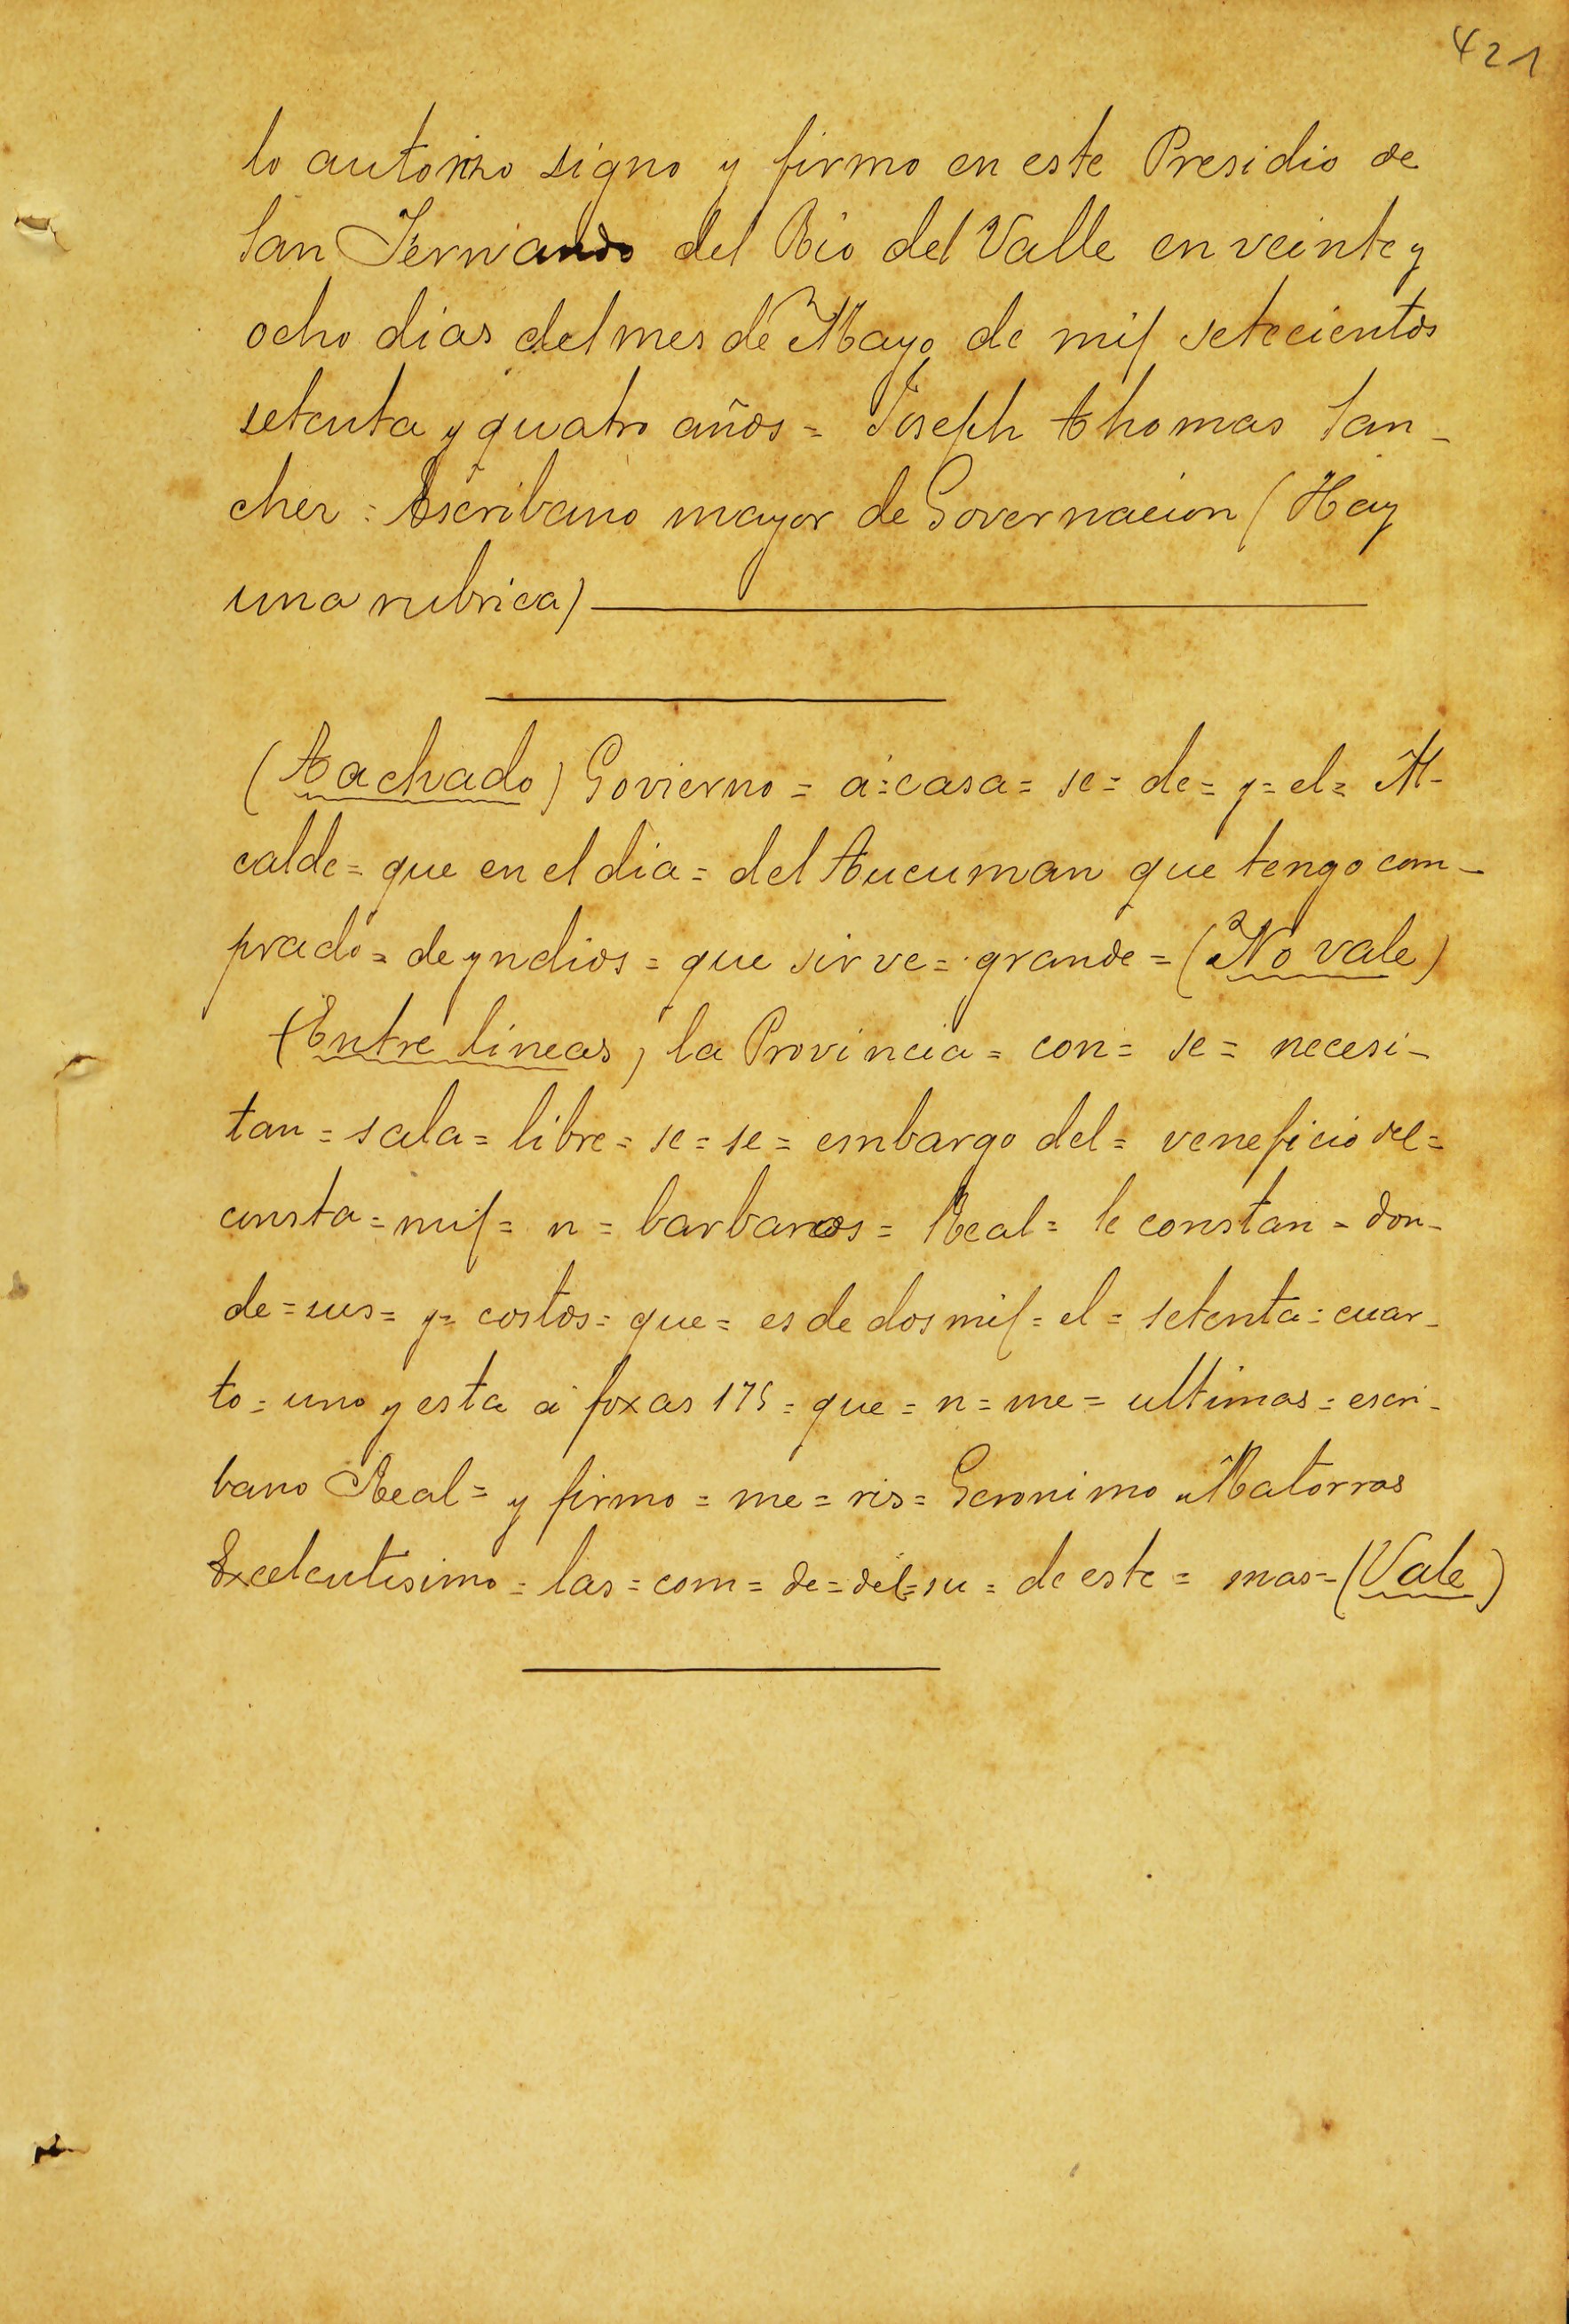 421
lo autorizo signo y firmo en este Presidio de
San Fernando del Rio del Valle en veinte y
ocho dias del mes de Mayo de mil setecientos
setenta y quatro años = Joseph Thomas San-
chez = Escribano mayor de Governacion (Hay
una rubrica)
(Tachado) Govierno = a = casa = se = de = y = el = Al-
calde = que en el dia = del Tucuman que tengo com-
prado = de yndios = que sirve = grande = (No vale)
(Entre lineas) la Provincia = con = se = necesi-
tan = sala = libre = se = se = embargo del = veneficio del =
consta = mil = n = barbaros = Real = le constan = don-
de = sus = y = costos = que = es de dos mil = el = setenta = cuar-
to = uno y esta á foxas 175 = que = n = me = ultimas = escri-
bano Real = y firmo = me = ris = Geronimo Matorras
Excelentisimo = las = com = de = del = su = de este = mas = (Vale)